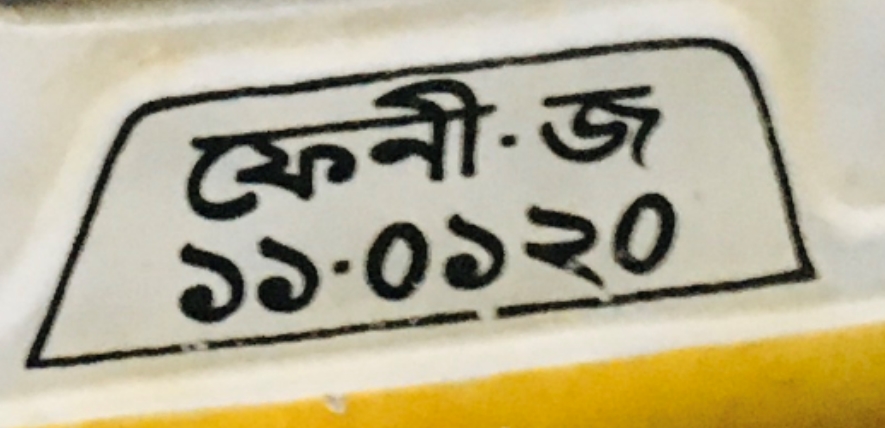 ফেনী·জ
১১·০১২০